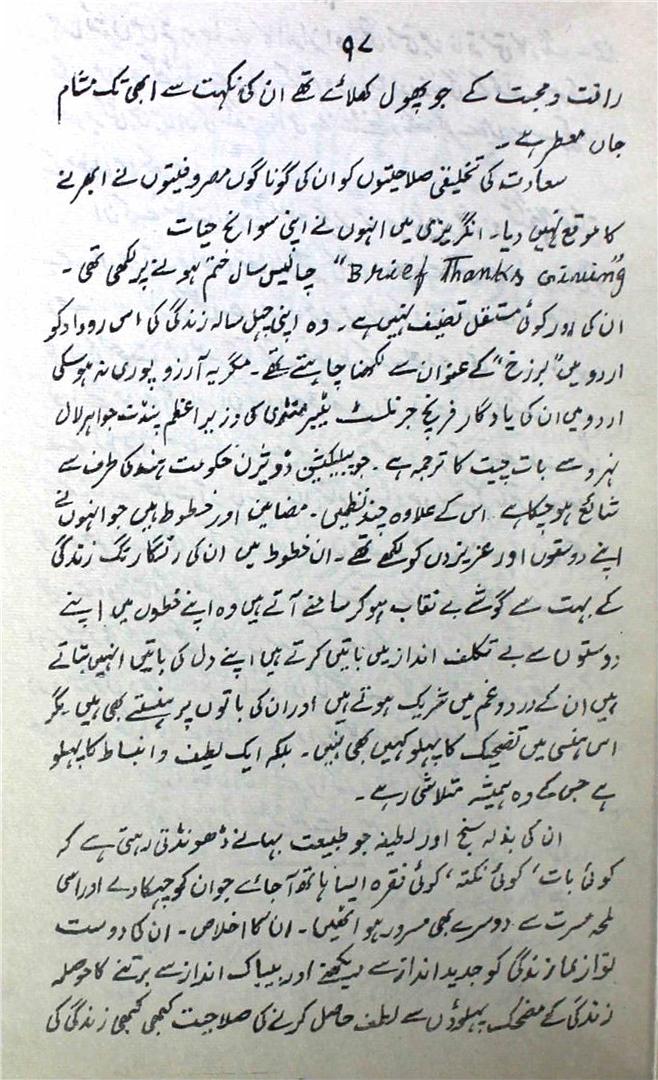 ۹۷
رافت و محبت کے جو پھول کھلائے تھے ان کی نکہت سے ابھی تک مشام
جاں معطر ہے۔
سعادت کی تخلیقی صلاحیتوں کو ان کی گوناگوں مصروفیتوں نے ابھرنے
کا موقع نہیں دیا۔ انگریزی میں انہوں نے اپنی سوانح حیات
"Brief Thanks Giving" چالیس سال ختم ہونے پر لکھی تھی۔
ان کی اور کوئی مستقل تصنیف نہیں ہے۔ وہ اپنی چہل سالہ زندگی کی اس روداد کو
اردو میں "برزخ" کے عنوان سے لکھنا چاہتے تھے۔ مگر یہ آرزو پوری نہ ہو سکی
اردو میں ان کی یادگار فرنچ جرنلسٹ کی وزیر اعظم پنڈت جواہر لال
نہرو سے بات چیت کا ترجمہ ہے۔ جو پبلیکیشن ڈویژن حکومت ہند کی طرف سے
شائع ہو چکا ہے اس کے علاوہ چند نظمیں۔ مضامین اور خطوط ہیں جو انہوں نے
اپنے دوستوں اور عزیزوں کو لکھے تھے۔ ان خطوط میں ان کی رنگا رنگ زندگی
کے بہت سے گوشے بے نقاب ہو کر سامنے آتے ہیں وہ اپنے خطوں میں اپنے
دوستوں سے بے تکلف انداز میں باتیں کرتے ہیں اپنے دل کی باتیں انہیں بتاتے
ہیں ان کے درد و غم میں شریک ہوتے ہیں اور ان کی باتوں پر ہنستے بھی ہیں۔ مگر
اس ہنسی میں تضحیک کا پہلو کہیں بھی نہیں۔ بلکہ ایک لطیف و انبساط کا پہلو
ہے جس کے وہ ہمیشہ متلاشی رہے۔
ان کی بذلہ سنج اور لطیفہ جو طبیعت بہانے ڈھونڈتی رہتی ہے کہ
کوئی بات، کوئی نکتہ، کوئی فقرہ ایسا ہاتھ آ جائے جو ان کو چہکا دے اور اسی
لمحہ مسرت سے دوسرے بھی مسرور ہو اٹھیں۔ ان کا اخلاص۔ ان کی دوست
نوازی زندگی کو جدید انداز سے دیکھنے اور بیباک انداز سے برتنے کا حوصلہ
زندگی کے مضحک پہلوؤں سے لطف حاصل کرنے کی صلاحیت کبھی کبھی زندگی کی